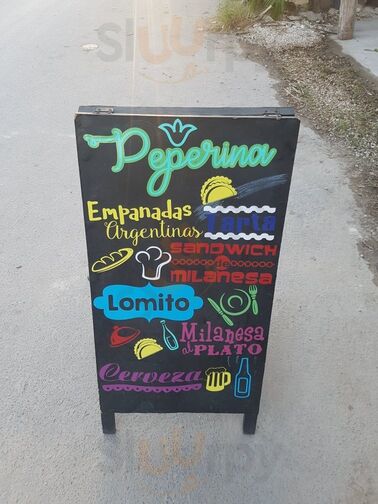 Peperina
Empanadas
Argentinas
Tarta
SANDWICH
de
MILANESA
Lomito
Milanesa
al PLATO
Cerveza